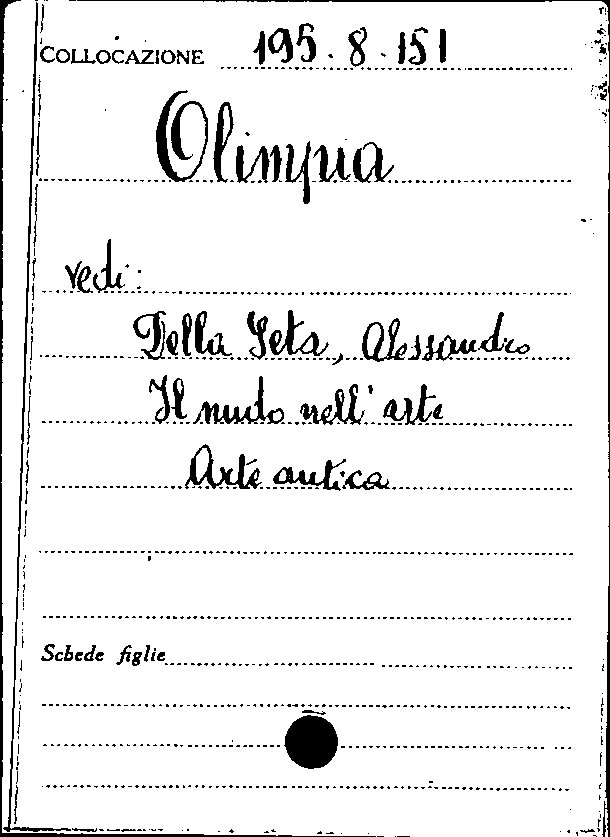 COLLOCAZIONE 195.8.151
Olimpia
vedi:
Della Seta, Alessandro
Il nudo nell'arte
Arte antica
Schede figlie